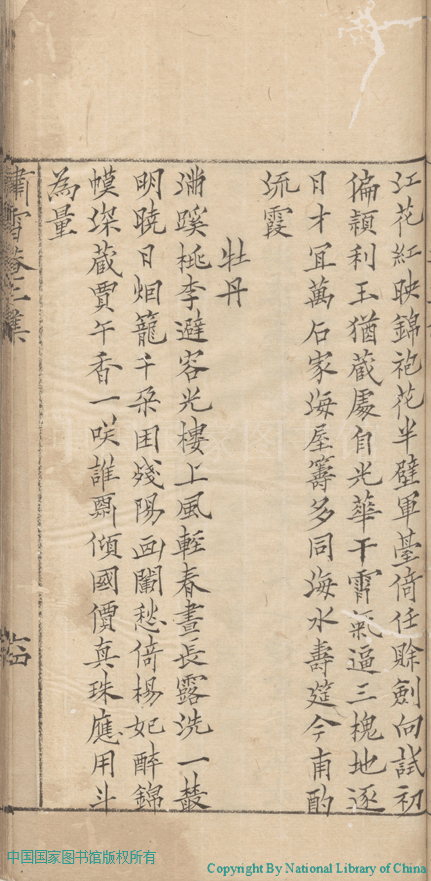 江花紅映錦袍花半壁軍臺倚任賒劍向試初
偏穎利玉猶藏處自光華干霄氣逼三槐地逐
日才宜萬石家海屋籌多同海水壽筵今甫酌
流霞
牡丹
滿蹊桃李避容光樓上風輕春晝長露洗一叢
明曉日烟籠千朶困殘陽画闌愁倚楊妃醉錦
幙深藏賈午香一咲誰酬傾國價真珠應用斗
為量
中国国家图书馆版权所有
Copyright By National Library of China